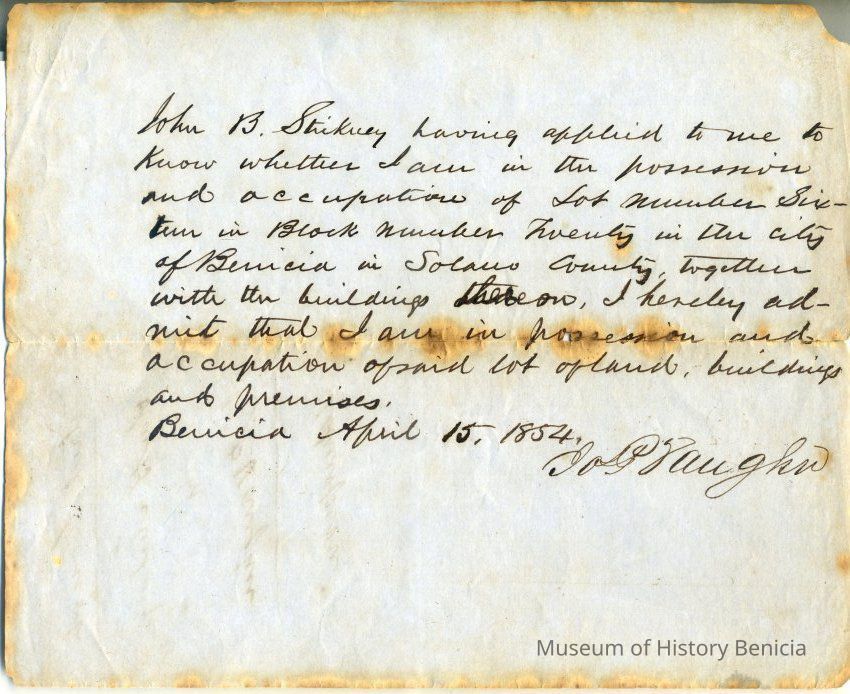 John B. Stikney having applied to me to
Know whether I am in the possession
and occupation of Lot Number Six-
teen in Block Number Twenty in the city
of Benicia in Solano County, together
with the buildings thereon, I hereby ad-
mit that I am in possession and
occupation of said lot of land, buildings
and premises.
Benicia April 15, 1854.
Jo P Vaughn
Museum of History Benicia